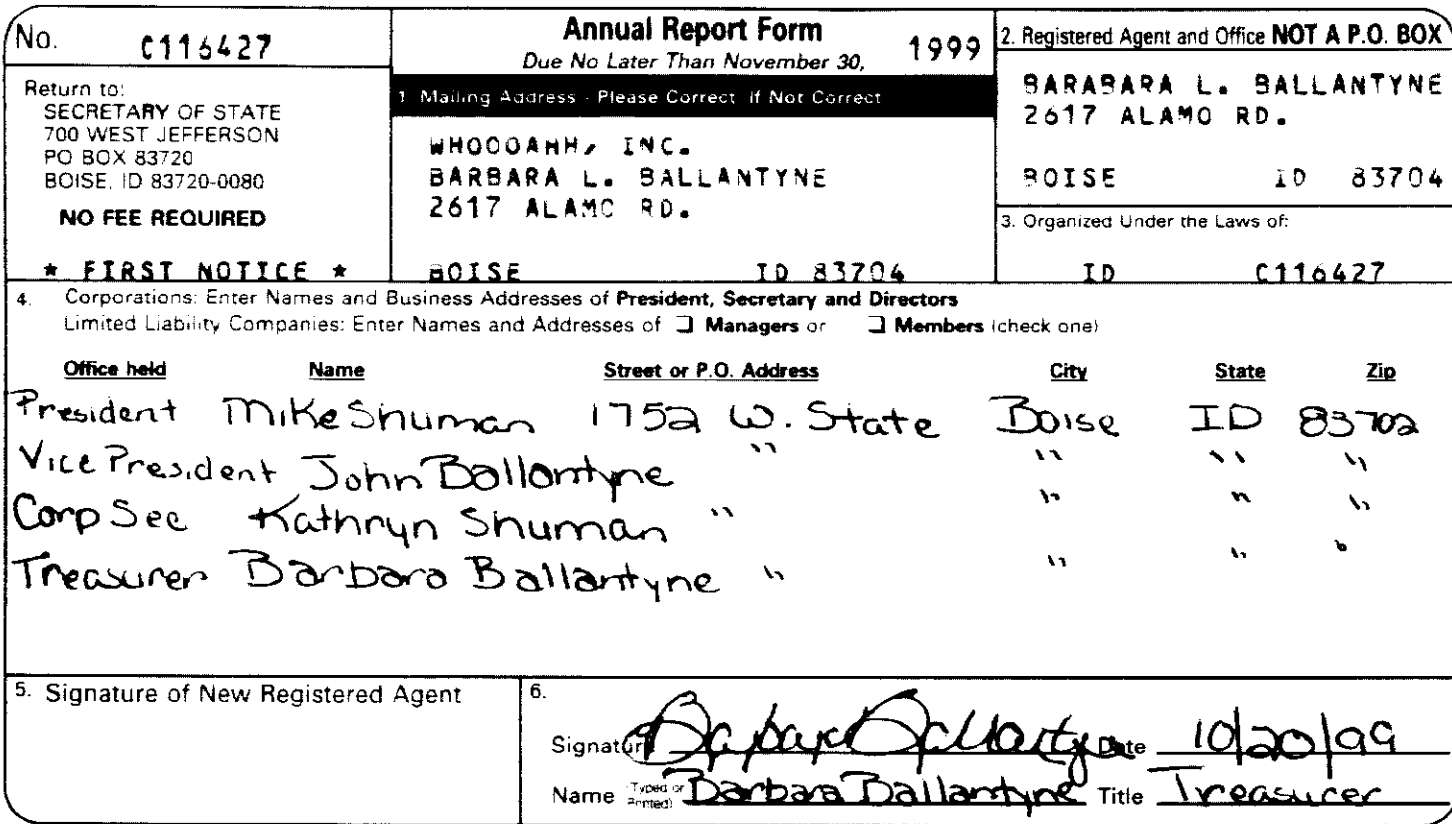 No. C116427
Return to:
SECRETARY OF STATE
700 WEST JEFFERSON
PO BOX 83720
BOISE, ID 83720-0080
NO FEE REQUIRED
* FIRST NOTICE *
Annual Report Form
Due No Later Than November 30, 1999
1 Mailing Address - Please Correct If Not Correct
WHOOOAHH, INC.
BARBARA L. BALLANTYNE
2617 ALAMO RD.
BOISE ID 83704
2. Registered Agent and Office NOT A P.O. BOX
BARABARA L. BALLANTYNE
2617 ALAMO RD.
BOISE ID 83704
3. Organized Under the Laws of:
ID C116427
4. Corporations: Enter Names and Business Addresses of President, Secretary and Directors
Limited Liability Companies: Enter Names and Addresses of ❏ Managers or ❏ Members (check one)
Office held Name Street or P.O. Address City State Zip
President Mike Shuman 1752 W. State Boise ID 83702
Vice President John Ballantyne " " " "
Corp Sec Kathryn Shuman " " " "
Treasurer Barbara Ballantyne " " " "
5. Signature of New Registered Agent
6.
Signature Barbara Ballantyne Date 10/20/99
Name (Typed or Printed) Barbara Ballantyne Title Treasurer